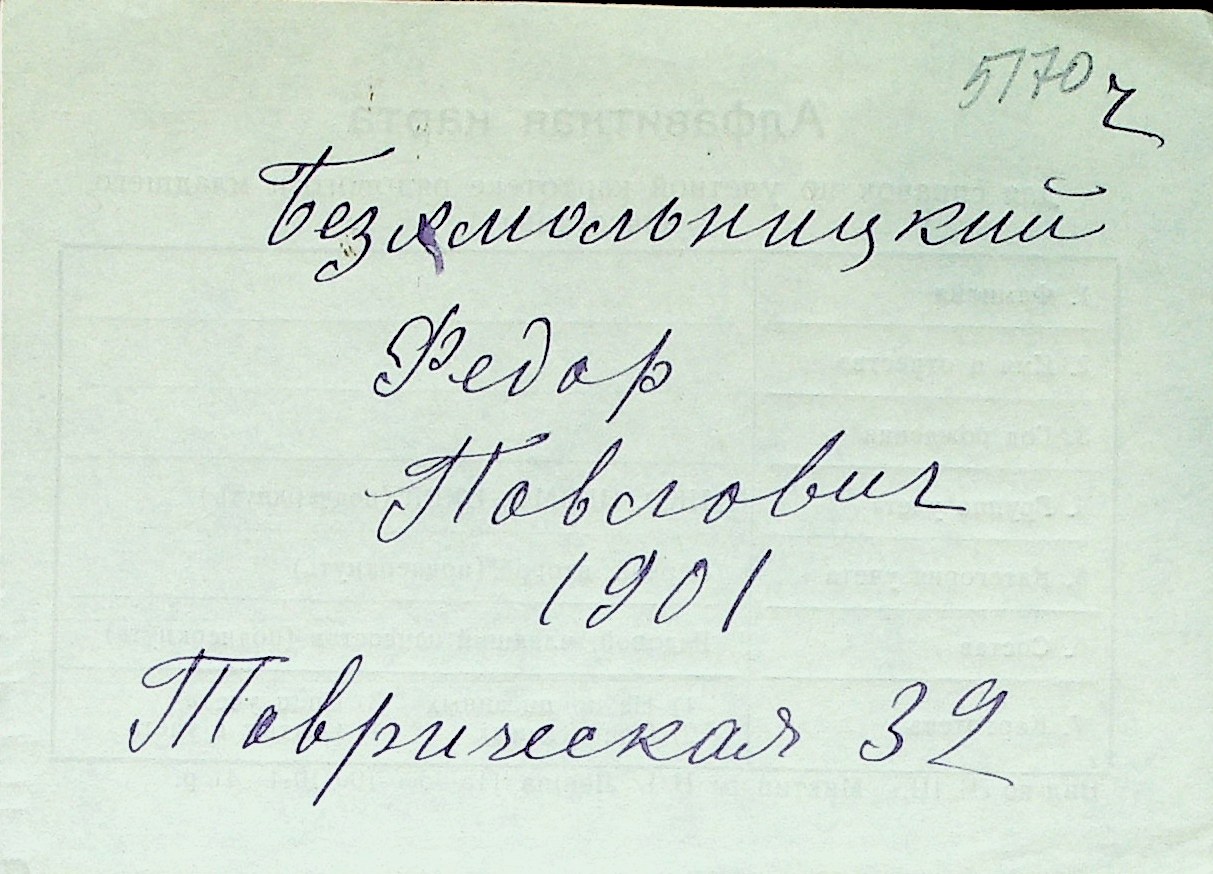 5170 ч
Безхмольницкий
Федор
Павлович
1901
Таврическая 32